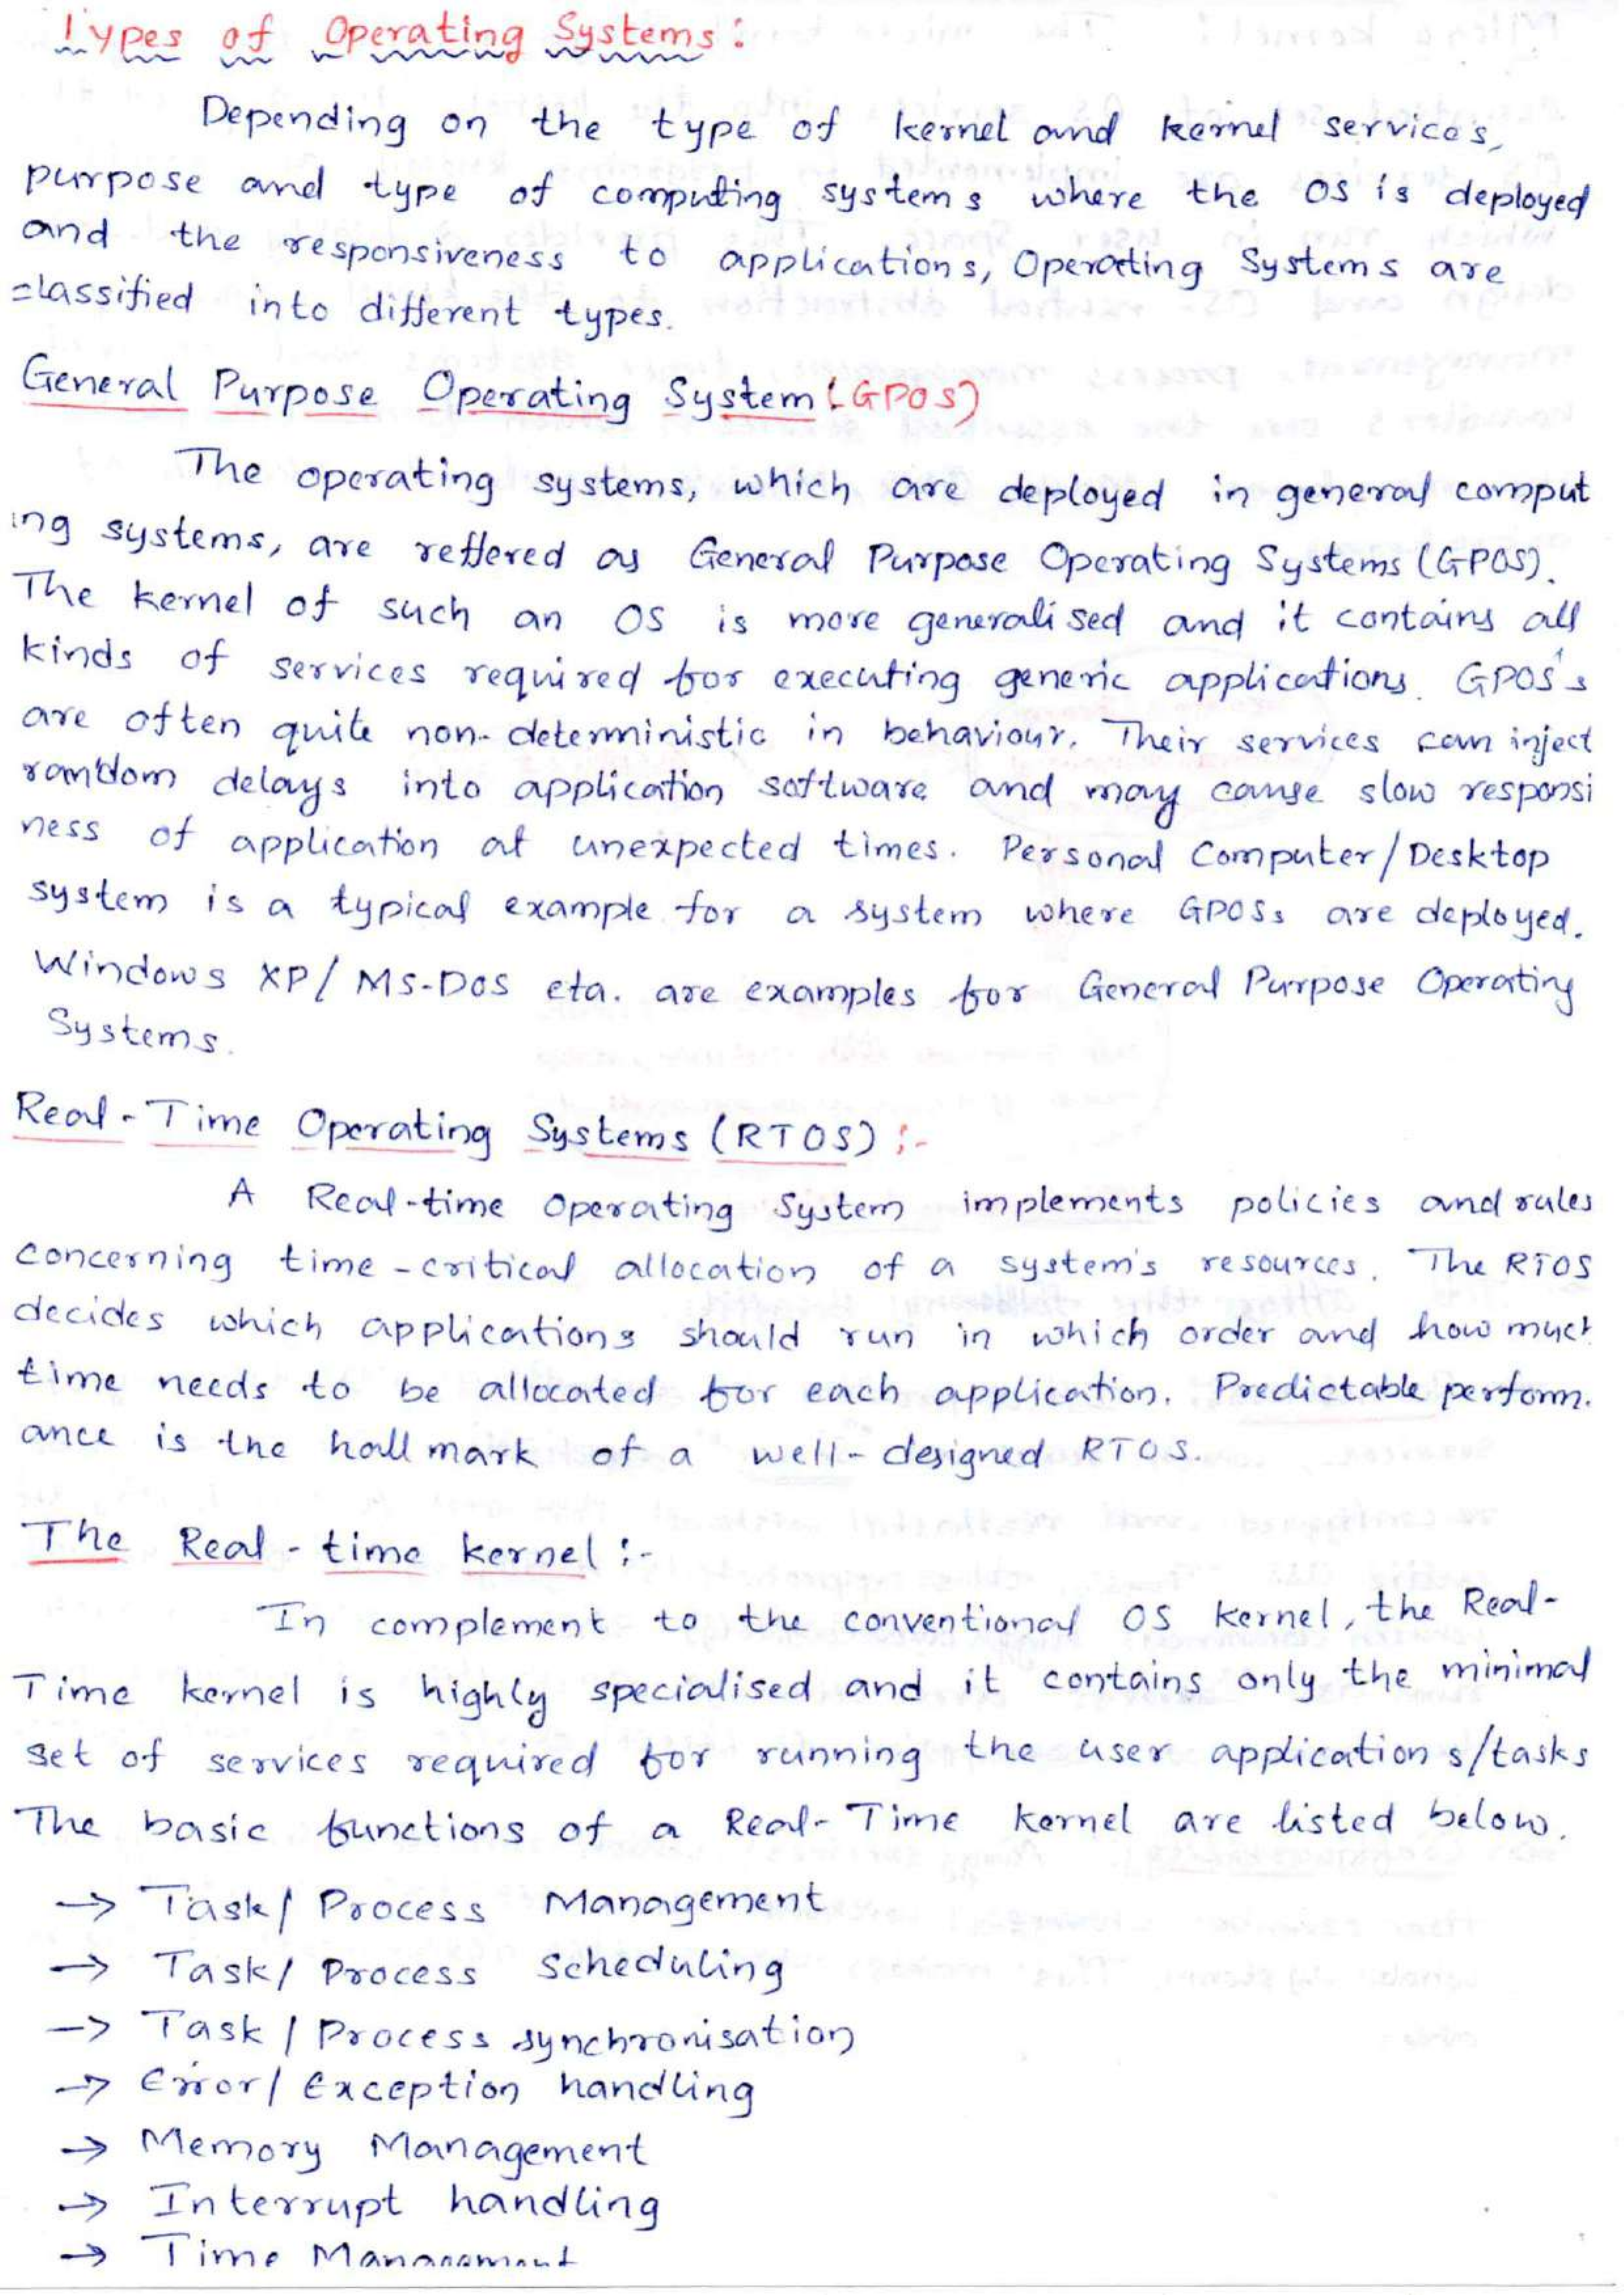 Types of Operating Systems:
Depending on the type of kernel and kernel services,
purpose and type of computing systems where the OS is deployed
and the responsiveness to applications, Operating Systems are
classified into different types.
General Purpose Operating System (GPOS)
The operating systems, which are deployed in general comput
ing systems, are reffered as General Purpose Operating Systems (GPOS).
The kernel of such an OS is more generalised and it contains all
kinds of services required for executing generic applications. GPOS's
are often quite non-deterministic in behaviour. Their services can inject
random delays into application software and may cause slow responsi
ness of application at unexpected times. Personal Computer/Desktop
system is a typical example for a system where GPOSs are deployed.
Windows XP/ MS-DOS eta. are examples for General Purpose Operating
Systems.
Real-Time Operating Systems (RTOS):-
A Real-time Operating System implements policies and rules
concerning time-critical allocation of a system's resources. The RTOS
decides which applications should run in which order and how much
time needs to be allocated for each application. Predictable perform.
ance is the hallmark of a well-designed RTOS.
The Real-time kernel:-
In complement to the conventional OS kernel, the Real-
Time kernel is highly specialised and it contains only the minimal
set of services required for running the user applications/tasks
The basic functions of a Real-Time kernel are listed below.
→ Task/ Process Management
→ Task/ Process Scheduling
→ Task / Process synchronisation
→ Error/ Exception handling
→ Memory Management
→ Interrupt handling
→ Time Management